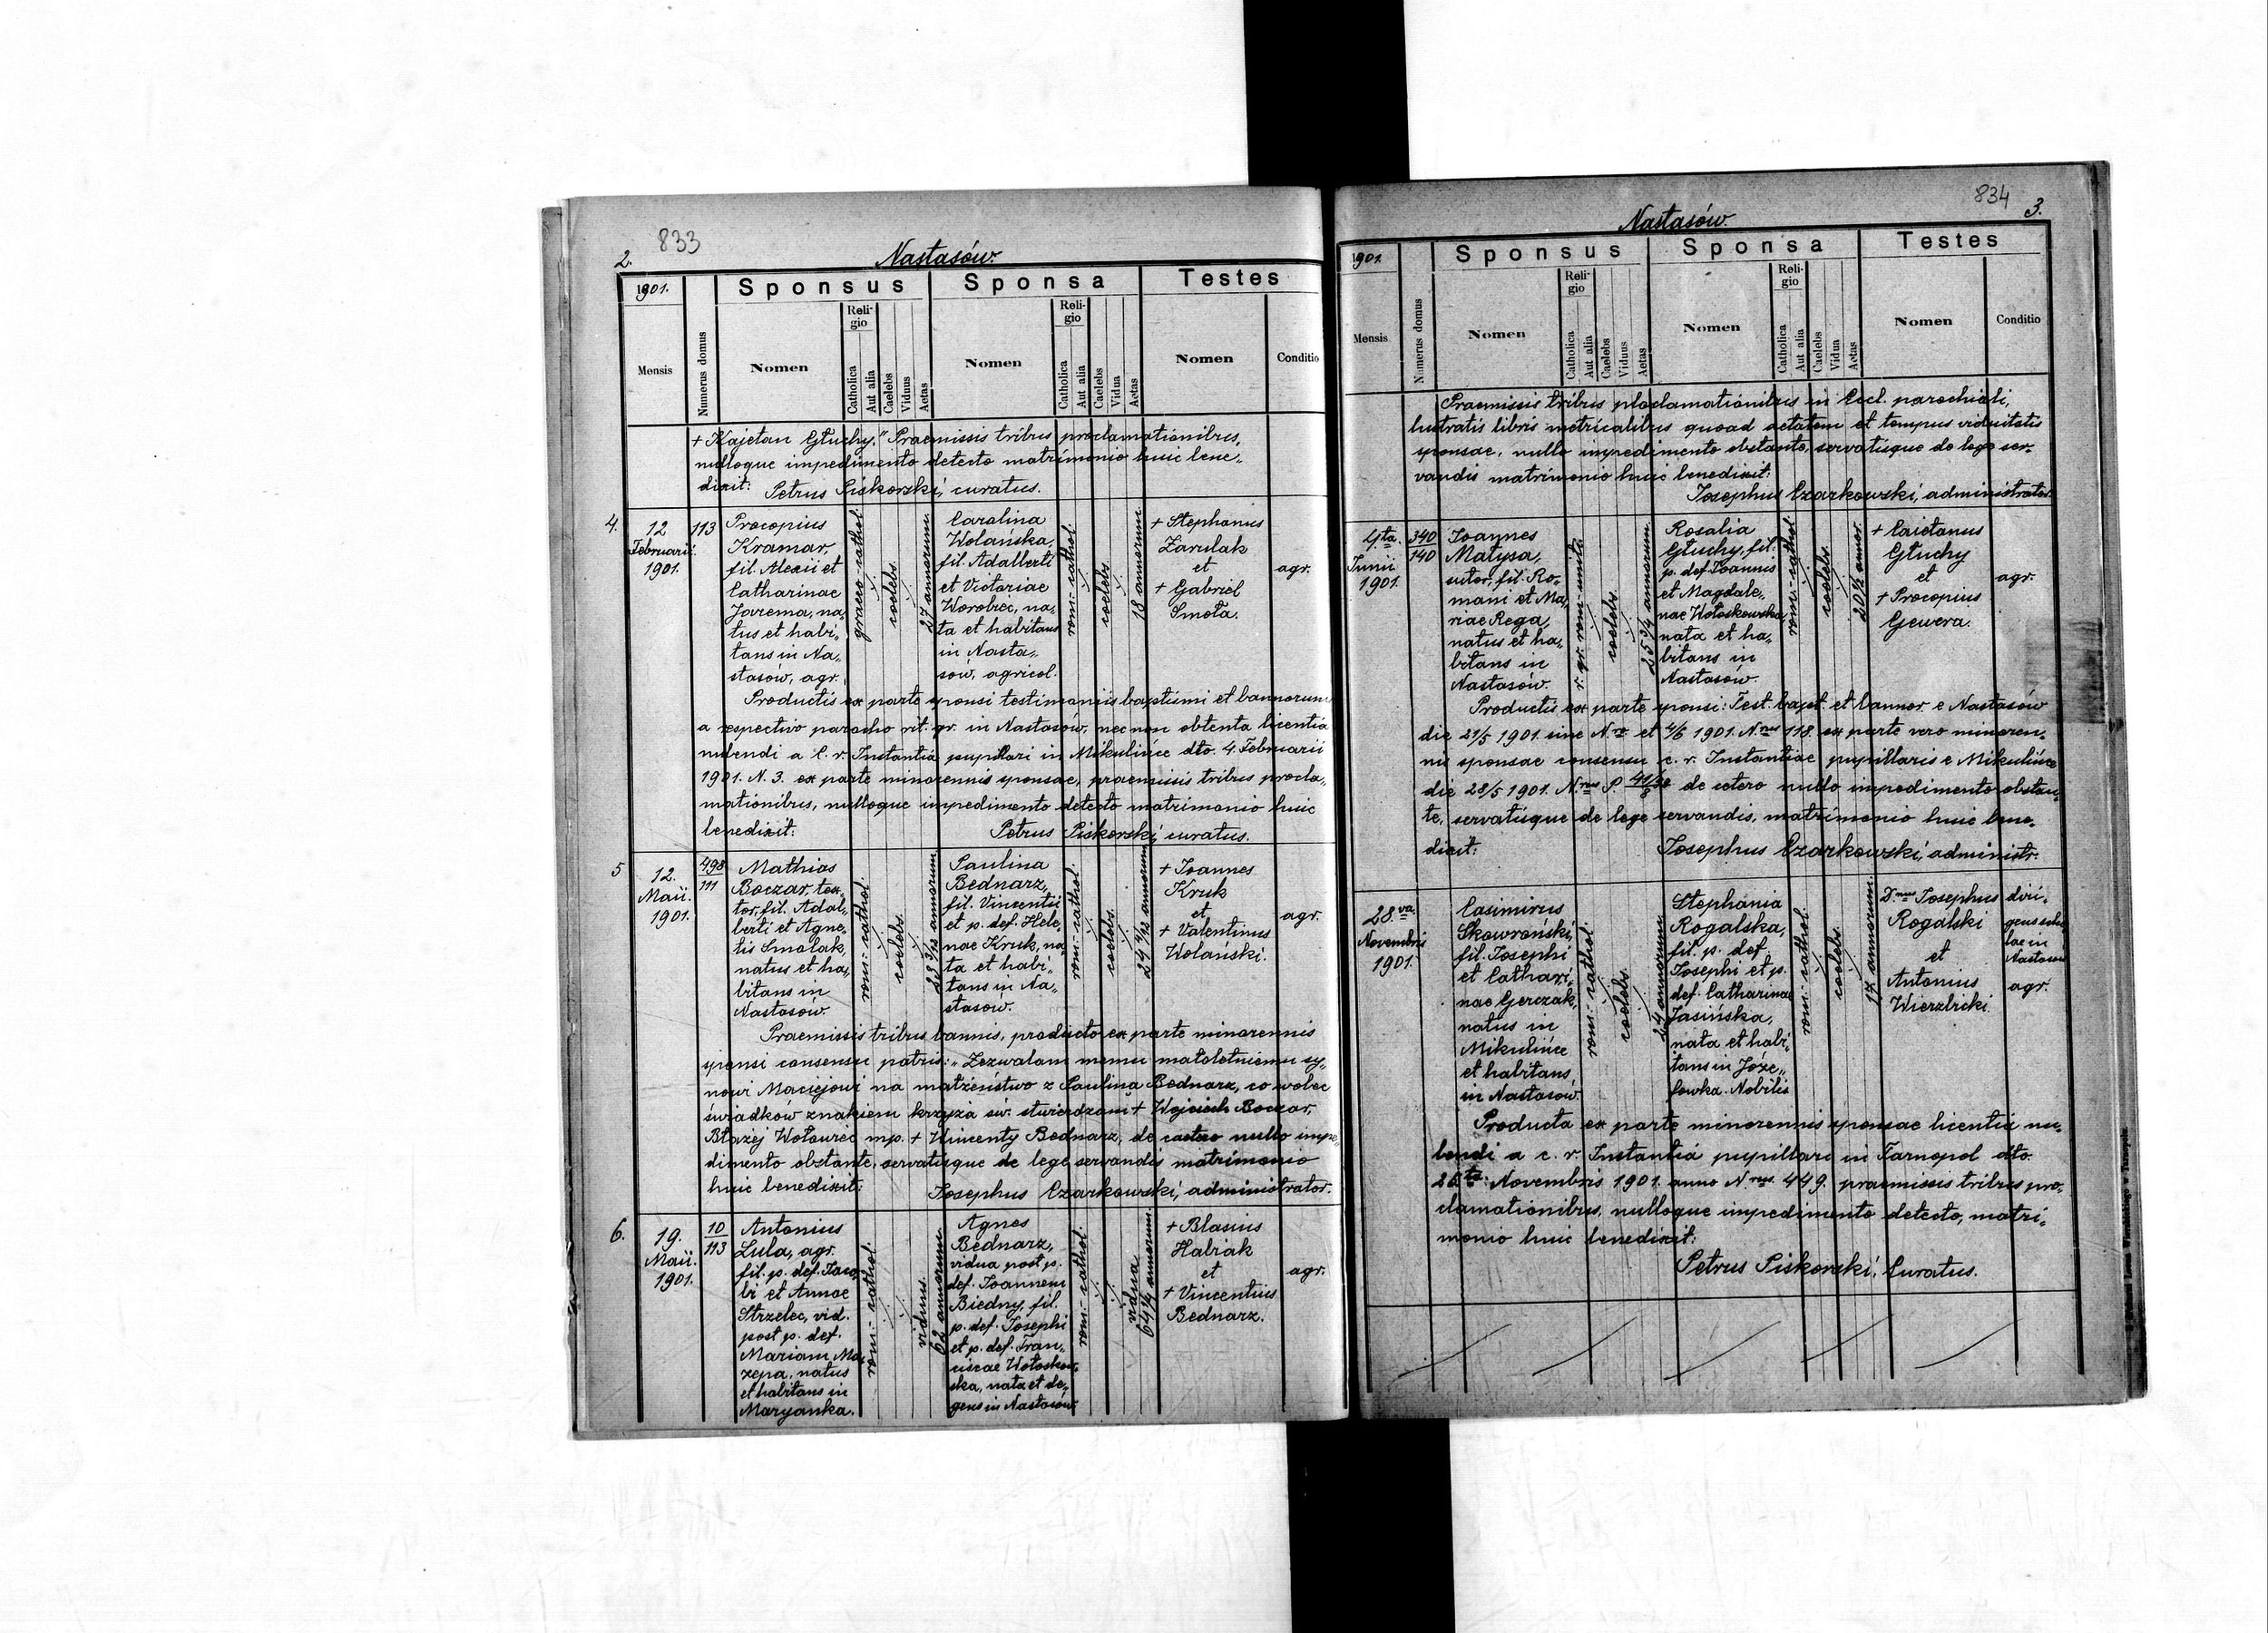 833
2.
Nastasów.
1901.
Sponsus
Sponsa
Testes
Mensis
Numerus domus
Nomen
Religio
Catholica
Aut alia
Caelebs
Viduus
Aetas
Nomen
Religio
Catholica
Aut alia
Caelebs
Vidua
Aetas
Nomen
Conditio
+ Kajetan Głuchy." Praemissis tribus proclamationibus,
nulloque impedimento detecto matrimonio huic bene„
dixit: Petrus Piskorski, curatus.
4.
12
Februarii
1901.
113
Procopius
Kramar,
fil. Alexii et
Catharinae
Jarema, na„
tus et habi„
tans in Na„
stasów, agr.
graeco-cathol.
coelebs.
27 annorum.
Carolina
Wolańska,
fil. Adalberti
et Victoriae
Worobiec, na„
ta et habitans
in Nasta„
sów, agricol.
rom.-cathol.
coelebs.
18 annorum.
+ Stephanus
Zarulak
et
+ Gabriel
Smoła.
agr.
Productis ex parte sponsi testimoniis baptismi et bannorum
a respectivo parocho rit. gr. in Nastasów, nec non obtenta licentia
nubendi a C. r. Instantiá pupillari in Mikulińce dto. 4. Februarii
1901. N. 3. ex parte minorennis sponsae, praemissis tribus procla„
mationibus, nulloque impedimento detecto matrimonio huic
benedixit: Petrus Piskorski, curatus.
5
12.
Maii.
1901.
498
111
Mathias
Boczar, tex„
tor, fil. Adal„
berti et Agne„
tis Smolak,
natus et ha„
bitans in
Nastasów.
rom.-cathol.
coelebs.
Paulina
Bednarz,
fil. Vincentii
et p. def. Hele„
nae Kruk, na„
ta et habi„
tans in Na„
stasów.
rom.-cathol.
coelebs.
+ Ioannes
Kruk
et
+ Valentinus
Wolański.
agr.
Praemissis tribus bannis, producto ex parte minorennis
sponsi consensu patris: „Zezwalam memu małoletniemu sy„
nowi Maciejowi na małżeństwo z Pauliną Bednarz, co wobec
świadków znakiem krzyża św. stwierdzam + Wojciech Boczar,
Błażej Wołowiec mp. + Wincenty Bednarz, de caetero nullo impe„
dimento obstante, servatisque de lege servandis matrimonio
huic benedixit: Iosephus Czarkowski, administrator.
6.
19.
Maii.
1901.
10
113
Antonius
Lula, agr.
fil. p. def. Iaco„
bi et Annae
Strzelec, vid.
post p. def.
Mariam Ma„
zepa, natus
et habitans in
Maryanka.
rom.-cathol.
viduus.
62 annorum.
Agnes
Bednarz,
vidua post p.
def. Ioannem
Biedny, fil.
p. def. Iosephi
et p. def. Fran„
ciscae Wołoskow„
ska, nata et de„
gens in Nastasów
rom.-cathol.
vidua
64¼ annorum.
+ Blasius
Habiak
et
+ Vincentius
Bednarz.
agr.
834
3.
Nastasów.
1901.
Sponsus
Sponsa
Testes
Mensis
Numerus domus
Nomen
Religio
Catholica
Aut alia
Caelebs
Viduus
Aetas
Nomen
Religio
Catholica
Aut alia
Caelebs
Vidua
Aetas
Nomen
Conditio
Praemissis tribus ploclamationibus in Eccl. parochiali,
lustratis libris metricalibus quoad aetatem et tempus viduitatis
sponsae, nullo impedimento obstante, servatisque de lege ser„
vandis matrimonio huic benedixit:
Iosephus Czarkowski, administrator.
4ta.
Iunii
1901.
340
140
Ioannes
Matysa,
sutor, fil. Ro„
mani et Ma„
riae Rega,
natus et ha„
bitans in
Nastasów.
r. gr. rom-unit.
coelebs
25 3/4 annorum.
Rosalia
Głuchy, fil.
p. def. Ioannis
et Magdale„
nae Wołoskowska,
nata et ha„
bitans in
Nastasów.
rom.-cathol.
coelebs.
20 1/2 annor.
+ Caietanus
Głuchy
et
+ Procopius
Gewera.
agr.
Productis ex parte sponsi: Test. bapt. et bannor. e Nastasów
die 21/5 1901. sine Nro. et 4/6 1901. Nrus 118. ex parte vero minoren„
nis sponsae consensu c. r. Instantiae pupillaris e Mikulińce
die 28/5 1901. Nrus P. de cetero nullo impedimento obstan„
te, servatisque de lege servandis, matrimonio huic bene„
dixit: Iosephus Czarkowski, administr.
28.va.
Novembris
1901.
Casimirus
Skowroński,
fil. Iosephi
et Cathari„
nae Gerczak,
natus in
Mikulińce
et habitans
in Nastasów.
rom.-cathol.
coelebs.
24 annorum.
Stephania
Rogalska,
fil. p. def.
Iosephi et p.
def. Catharinae
Jasińska,
nata et habi„
tans in Józe„
fowka. Nobilis
rom.-cathol.
coelebs.
17 annorum.
Dnus Iosephus
Rogalski
et
Antonius
Wierzbicki.
diri„
gens scho„
lae in
Nastasów
agr.
Producta ex parte minorennis sponsae licentiá nu„
bendi a c. r. Instantiá pupillari in Tarnopol dto.
Novembris 1901. anno Nrus. 449. praemissis tribus pro„
clamationibus, nulloque impedimento detecto, matri„
monio huic benedixit:
Petrus Piskorski, Curatus.